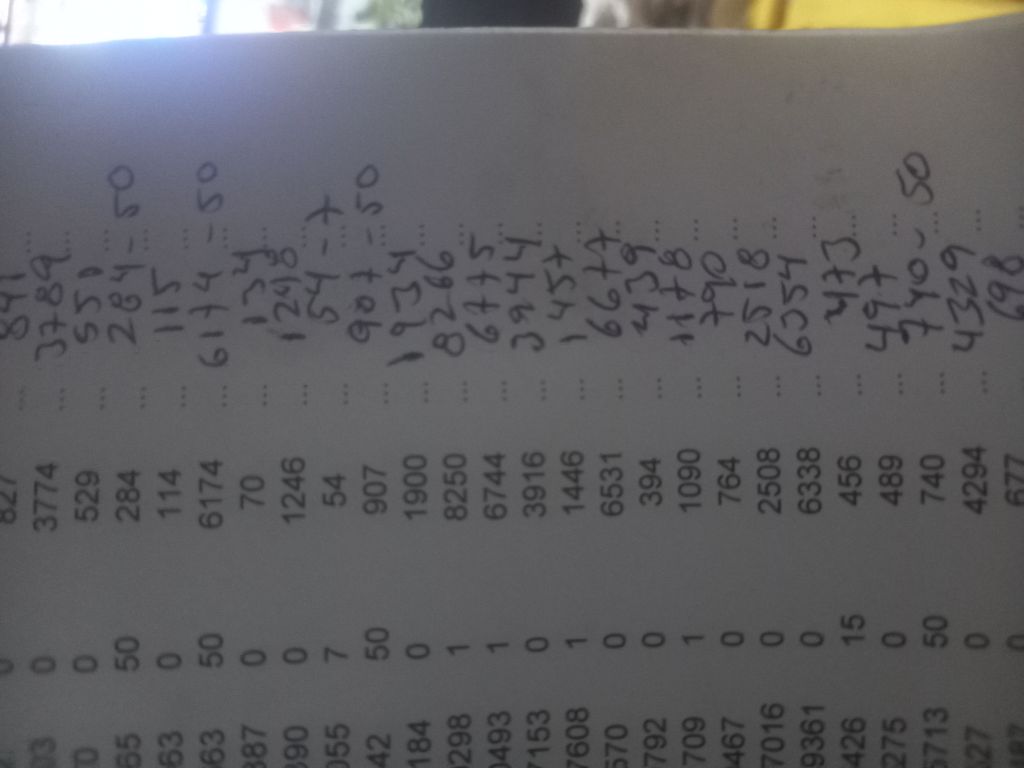 827 ... 841
03 0 3774 ... 3789 ...
70 0 529 ... 551 ...
65 50 284 ... 284 - 50
63 0 114 ... 115 ...
663 50 6174 ... 6174 - 50
887 0 70 ... 134 ...
890 0 1246 ... 1248 ...
055 7 54 ... 54 - 7
42 50 907 ... 907 - 50
184 0 1900 ... 1934 ...
298 1 8250 ... 8266 ...
0493 1 6744 ... 6775 ...
7153 0 3916 ... 3944 ...
7608 1 1446 ... 1457 ...
570 0 6531 ... 6677 ...
792 0 394 ... 439 ...
709 1 1090 ... 1178 ...
467 0 764 ... 790 ...
7016 0 2508 ... 2518 ...
9361 0 6338 ... 6354 ...
426 15 456 ... 473 ...
275 0 489 ... 497 ...
5713 50 740 ... 740 - 50
527 0 4294 ... 4329 ...
0 677 698